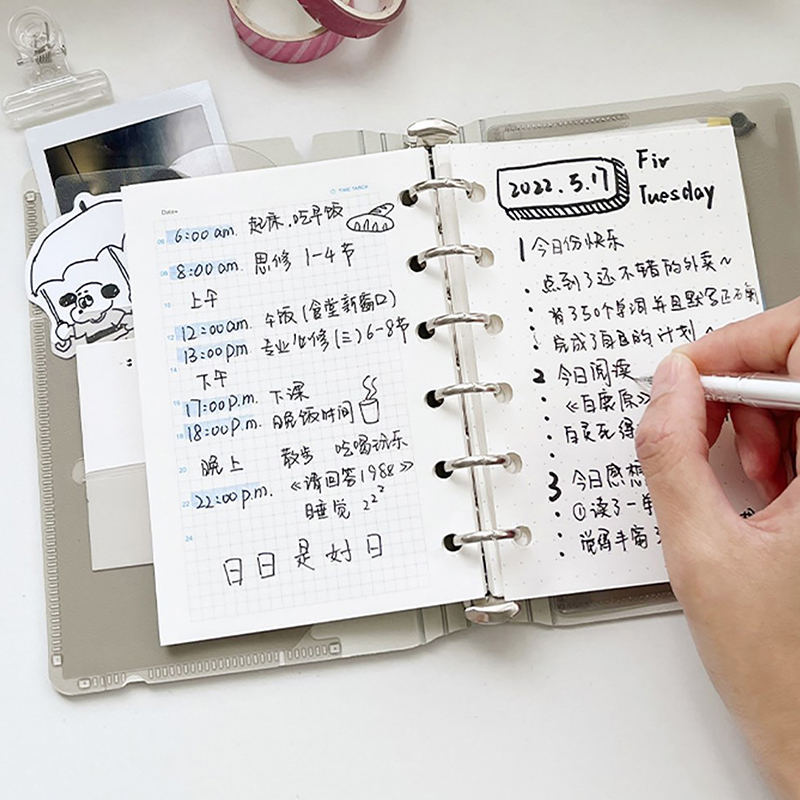 Date•
TIME TABLE
06
6:00 am. 起床,吃早饭
08
8:00 am. 思修 1-4节
10
上午
12
12:00 am. 午饭(食堂新窗口)
13:00 p.m. 专业必修(三)6-8节
14
下午
16
17:00 p.m. 下课
18
18:00 p.m. 晚饭时间
20
晚上 散步 吃喝玩乐
22
22:00 p.m. 《请回答1988》
睡觉 zzz
24
日日是好日
2022.5.17 Fir
Tuesday
1 今日份快乐
· 点到了还不错的外卖~
· 背了50个单词并且默写正确
· 完成了自己的计划~
2 今日阅读
· 《白鹿原》
· 白灵死得
3 今日感想
· ①读了一